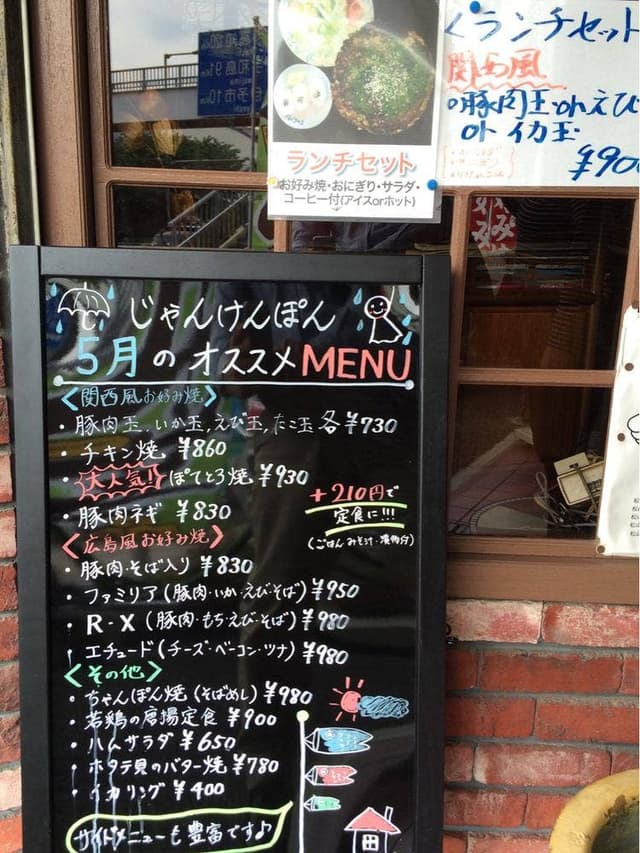 ランチセット
お好み焼・おにぎり・サラダ・
コーヒー付(アイスorホット)
くランチセット
関西風
豚肉玉orえび
or イカ玉
¥900
じゃんけんぽん
5月のオススメMENU
<関西風お好み焼>
・豚肉玉、いか玉、えび玉、たこ玉 各 ¥730
・チキン焼 ¥860
・大人気!ぽてとろ焼 ¥930
・豚肉ネギ ¥830
+210円で
定食に!!!
(ごはん・みそ汁・漬物付)
<広島風お好み焼>
・豚肉・そば入り ¥830
・ファミリア(豚肉・いか・えび・そば) ¥950
・R・X(豚肉・もち・えび・そば) ¥980
・エチュード(チーズ・ベーコン・ツナ) ¥980
<その他>
・ちゃんぽん焼(そばめし) ¥980
・若鶏の唐揚定食 ¥900
・ハムサラダ ¥650
・ホタテ貝のバター焼 ¥780
・イカリング ¥400
サイドメニューも豊富です♪